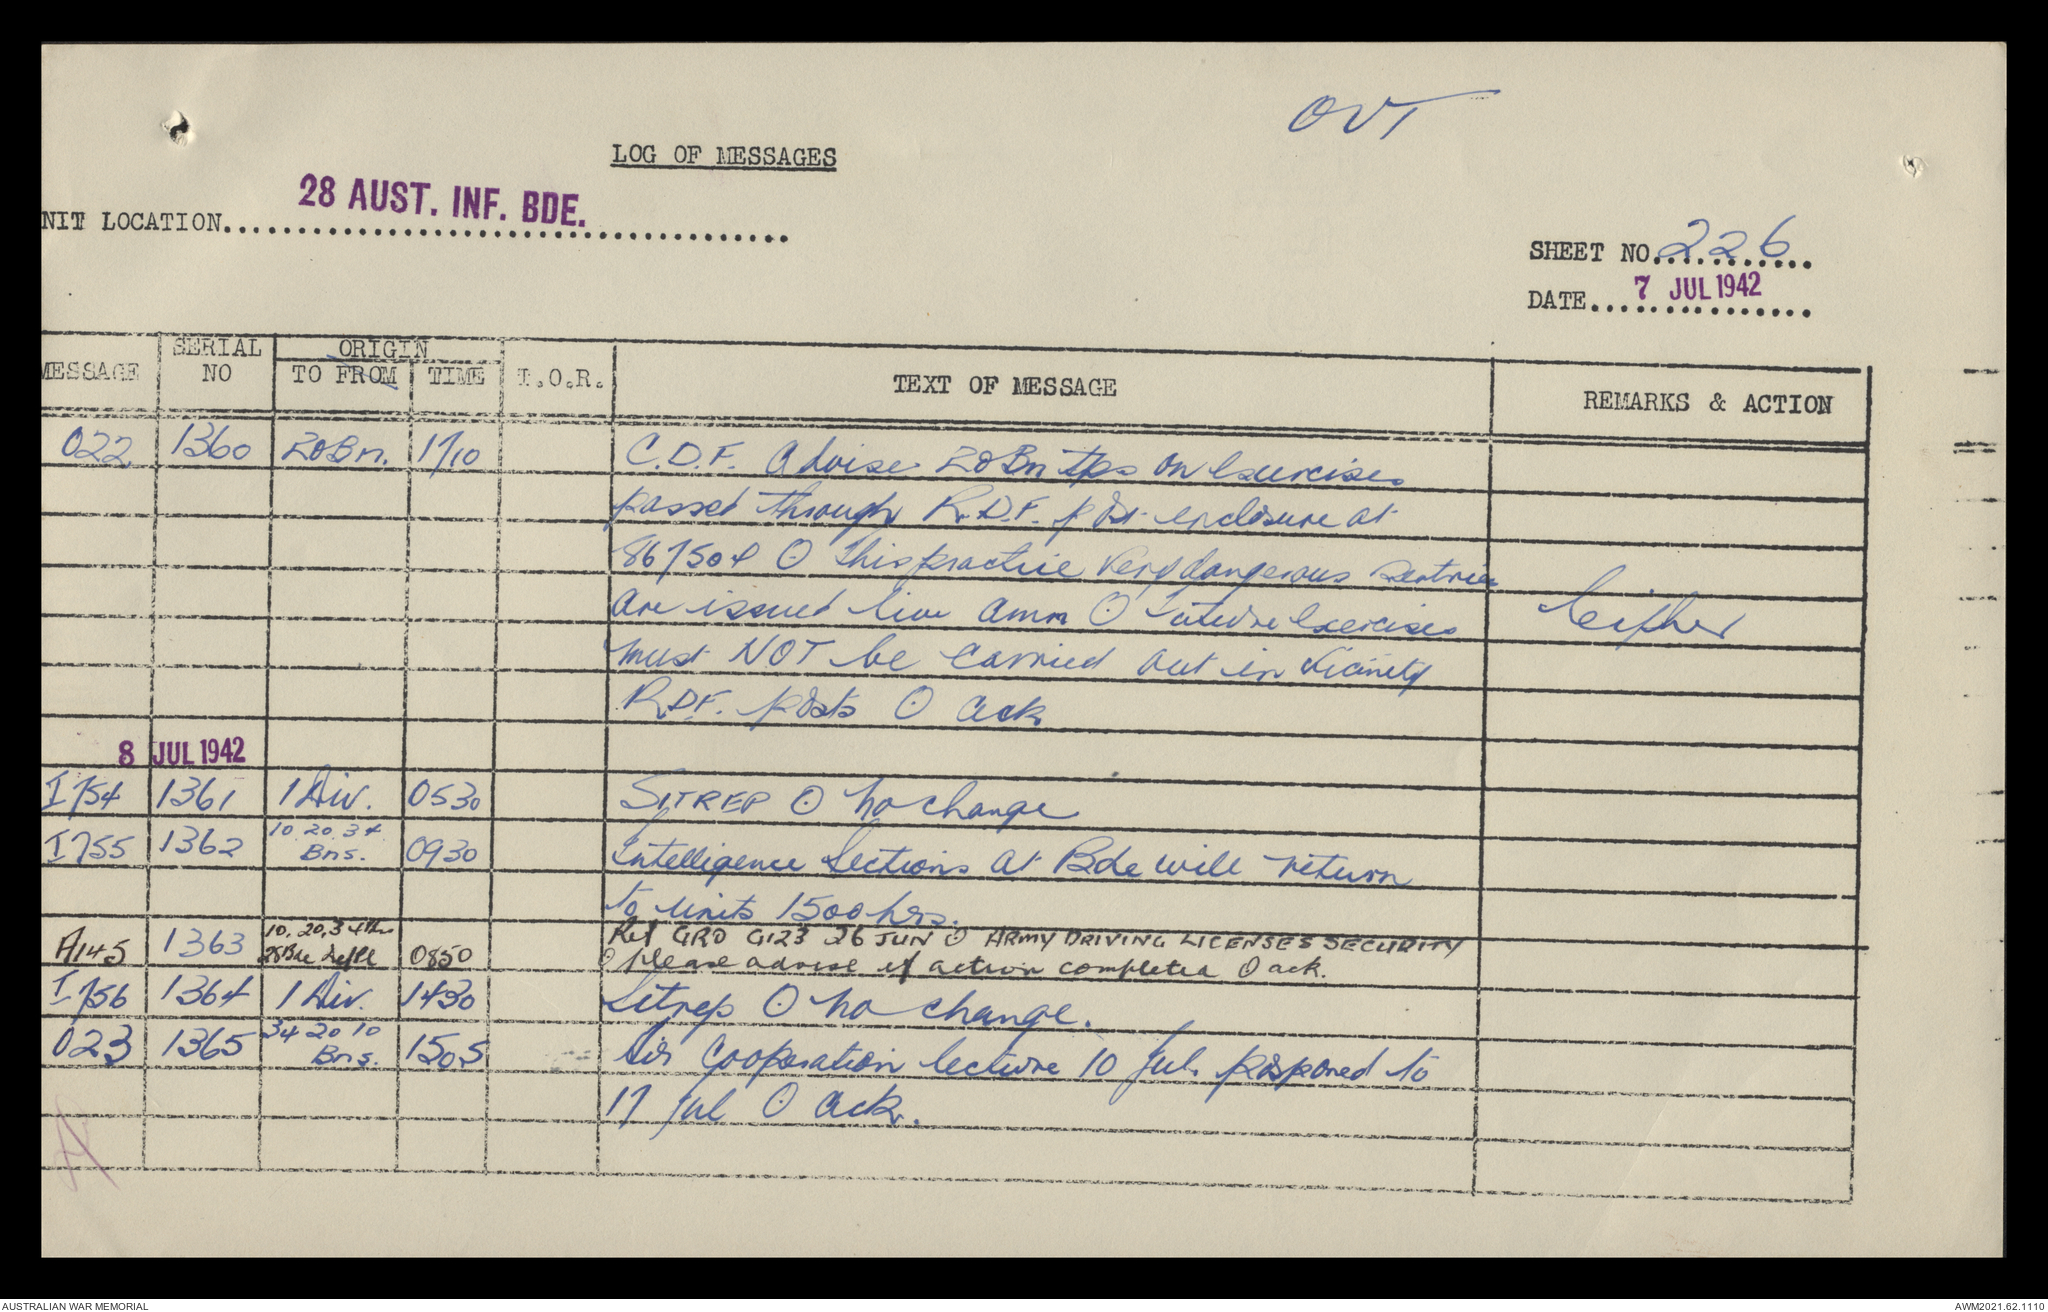 OUT
LOG OF MESSAGES
28 AUST. INF. BDE.
NIT LOCATION
SHEET NO. 226
DATE 7 JUL 1942
MESSAGE SERIAL NO ORIGIN TO FROM TIME T.O.R. TEXT OF MESSAGE REMARKS & ACTION
022 1360 20Bn. 1710 C.D.F. advise 20Bn tps on exercises
passed through R.D.F. post enclosure at
867504 O This practice very dangerous sentries
are issued live amm O Future exercises Cipher
must NOT be carried out in vicinity
R.D.F. posts O ack
8 JUL 1942
I754 1361 1 Div. 0530 SITREP O no change
I755 1362 10. 20. 34 Bns. 0930 Intelligence Sections at Bde will return
to units 1500 hrs.
A145 1363 10, 20, 34 Bns 28 Bde 0850 Ref GRO G123 26 JUN O ARMY DRIVING LICENSES SECURITY
O please advise if action completed O ack.
I756 1364 1 Div. 1430 Sitrep O no change.
023 1365 34 20 10 Bns. 1505 Air Cooperation lecture 10 Jul. posponed to
17 Jul O ack.
AUSTRALIAN WAR MEMORIAL
AWM2021.62.1110